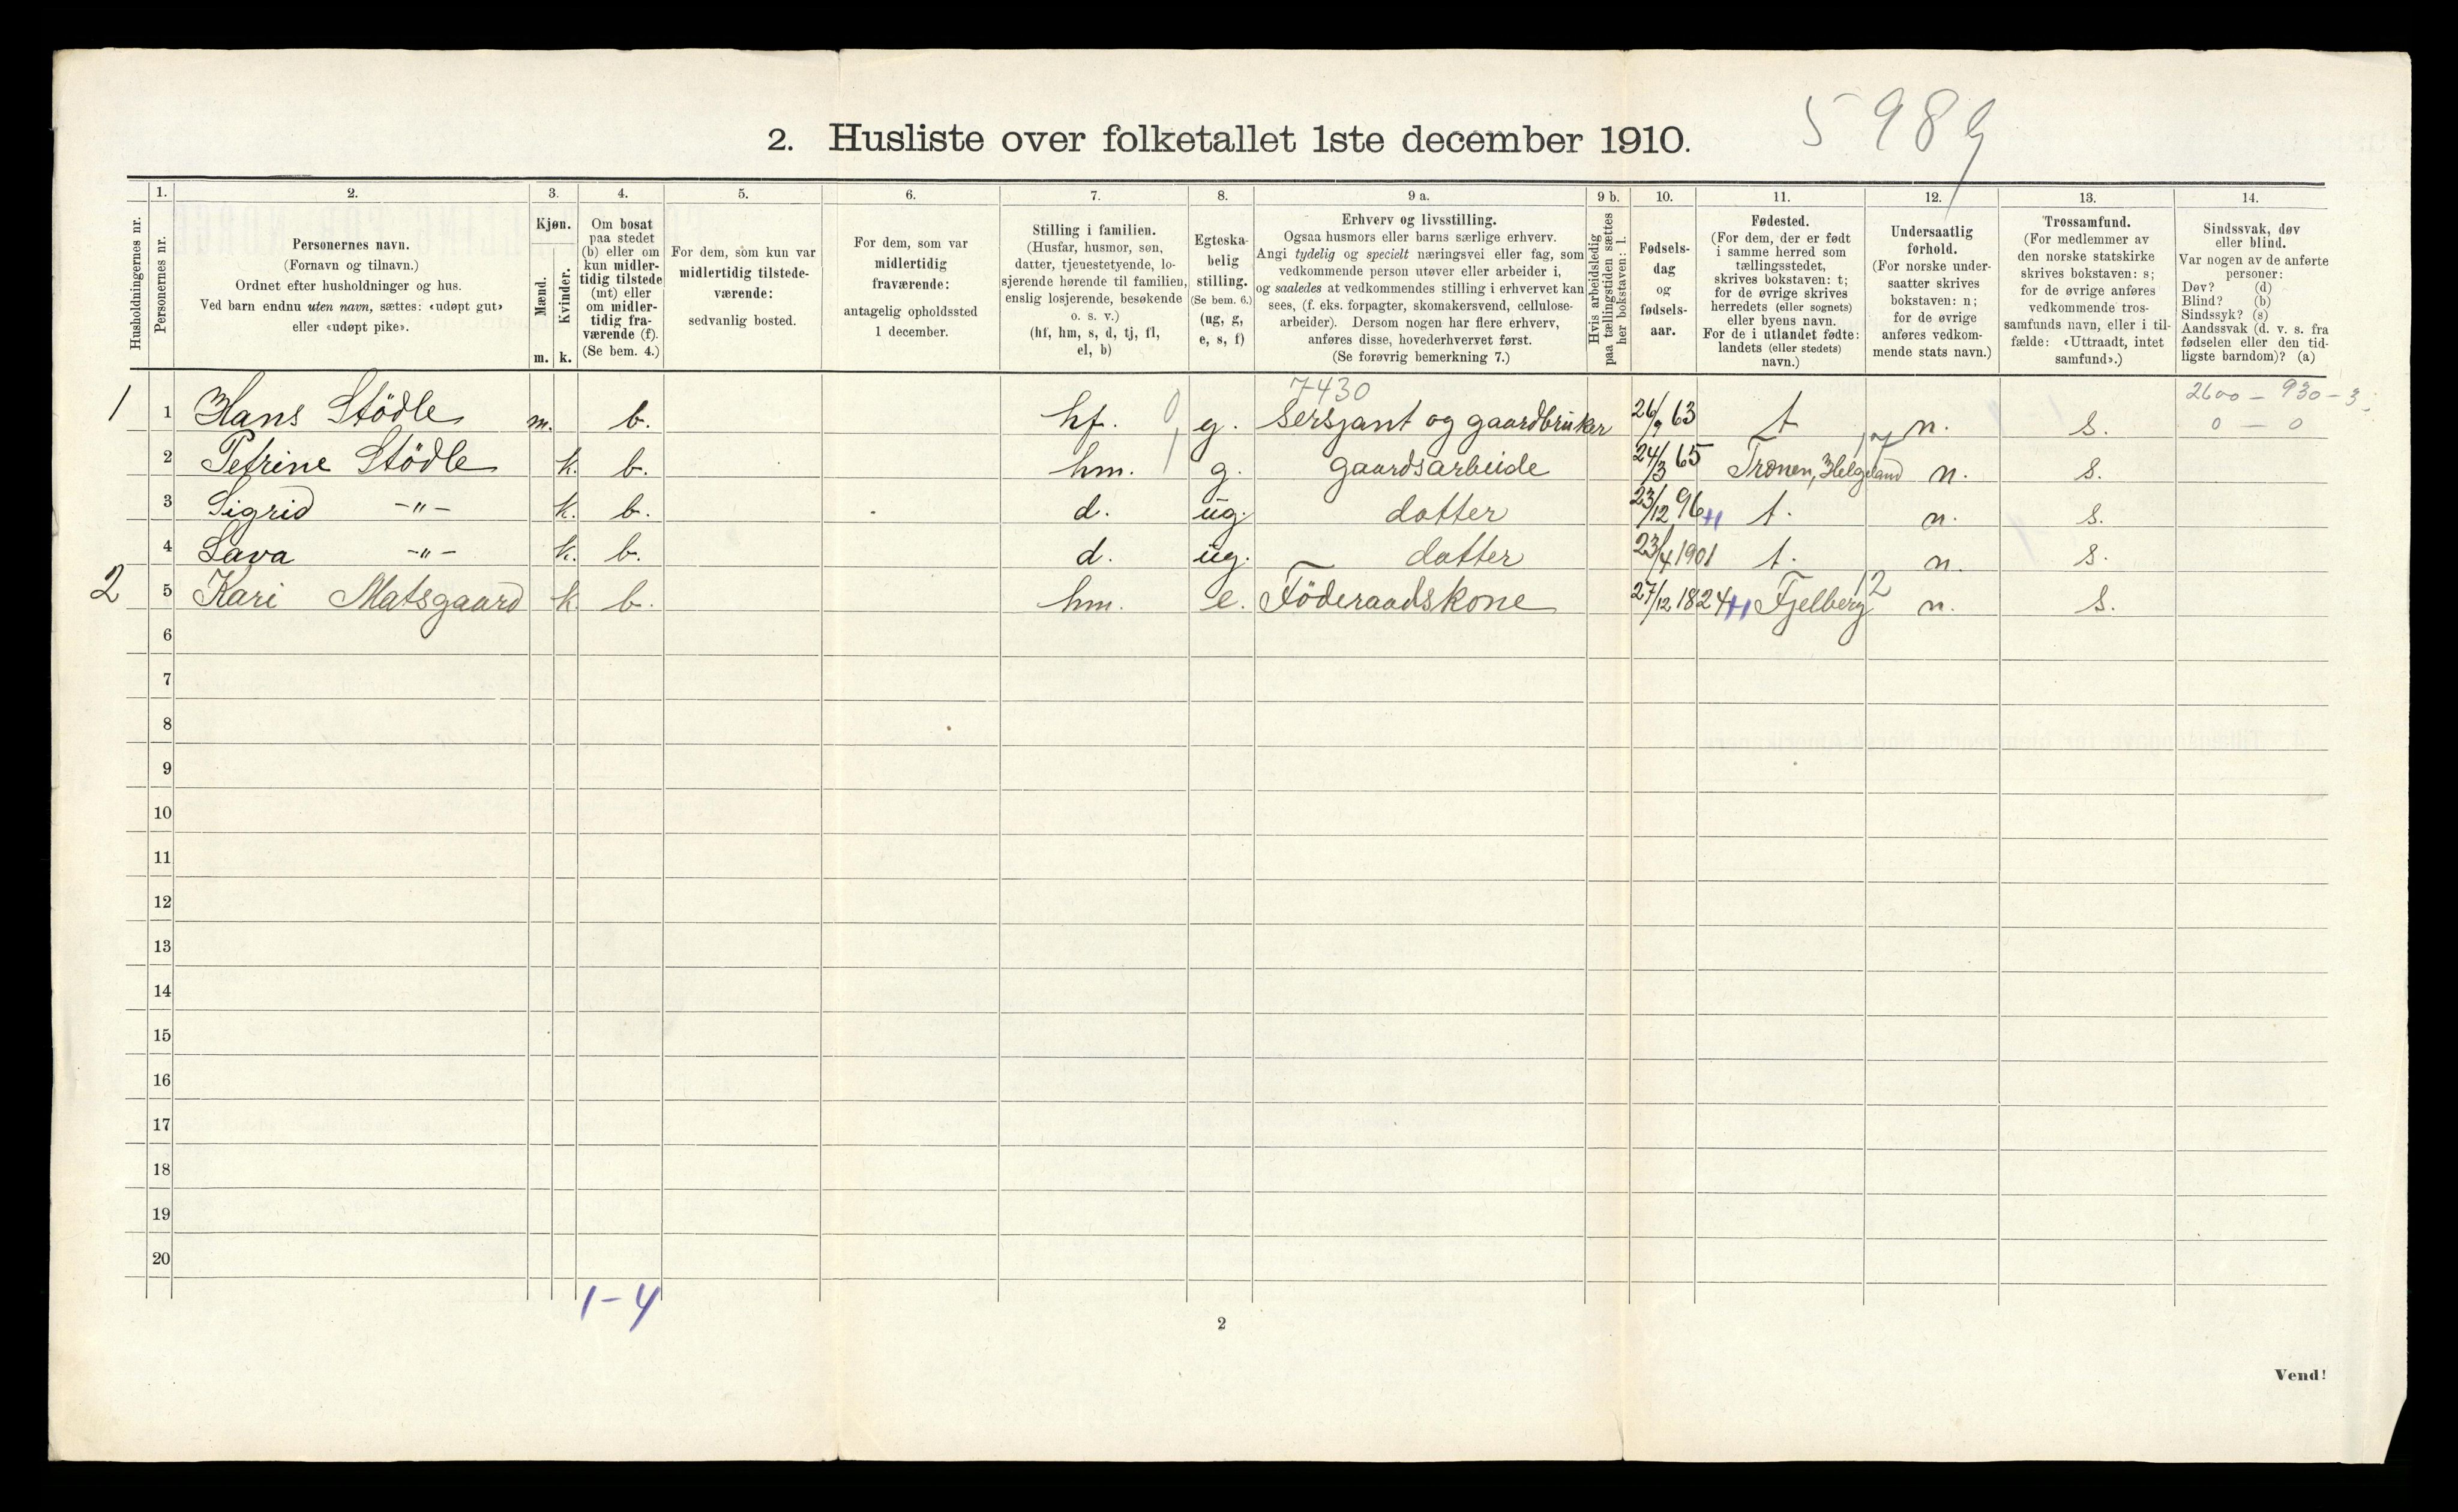 5989
2. Husliste over folketallet 1ste december 1910.
1. 2. 3. 4. 5. 6. 7. 8. 9 a. 9 b. 10. 11. 12. 13. 14.
Husholdningernes nr.
Personernes nr.
Personernes navn.
(Fornavn og tilnavn.)
Ordnet efter husholdninger og hus.
Ved barn endnu uten navn, sættes: «udøpt gut»
eller «udøpt pike».
Kjøn.
Mænd.
Kvinder.
m. k.
Om bosat
paa stedet
(b) eller om
kun midler-
tidig tilstede
(mt) eller
om midler-
tidig fra-
værende (f).
(Se bem. 4.)
For dem, som kun var
midlertidig tilstede-
værende:
sedvanlig bosted.
For dem, som var
midlertidig
fraværende:
antagelig opholdssted
1 december.
Stilling i familien.
(Husfar, husmor, søn,
datter, tjenestetyende, lo-
sjerende hørende til familien,
enslig losjerende, besøkende
o. s. v.)
(hf, hm, s, d, tj, fl,
el, b)
Egteska-
belig
stilling.
(Se bem. 6.)
(ug, g,
e, s, f)
Erhverv og livsstilling.
Ogsaa husmors eller barns særlige erhverv.
Angi tydelig og specielt næringsvei eller fag, som
vedkommende person utøver eller arbeider i,
og saaledes at vedkommendes stilling i erhvervet kan
sees, (f. eks. forpagter, skomakersvend, cellulose-
arbeider). Dersom nogen har flere erhverv,
anføres disse, hovederhvervet først.
(Se forøvrig bemerkning 7.)
Hvis arbeidsledig
paa tællingstiden sættes
her bokstaven: l.
Fødsels-
dag
og
fødsels-
aar.
Fødested.
(For dem, der er født
i samme herred som
tællingsstedet,
skrives bokstaven: t;
for de øvrige skrives
herredets (eller sognets)
eller byens navn.
For de i utlandet fødte:
landets (eller stedets)
navn.)
Undersaatlig
forhold.
(For norske under-
saatter skrives
bokstaven: n;
for de øvrige
anføres vedkom-
mende stats navn.)
Trossamfund.
(For medlemmer av
den norske statskirke
skrives bokstaven: s;
for de øvrige anføres
vedkommende tros-
samfunds navn, eller i til-
fælde: «Uttraadt, intet
samfund».)
Sindssvak, døv
eller blind.
Var nogen av de anførte
personer:
Døv? (d)
Blind? (b)
Sindssyk? (s)
Aandssvak (d. v. s. fra
fødselen eller den tid-
ligste barndom)? (a)
7430 2600 – 930 – 3
1 1 Hans Stödle m. b. hf. 0 g. Sersjant og gaardbruker 26/9 63 t n. s. 0 – 0
2 Petrine Stödle k. b. hm. 1 g. gaardsarbeide 24/3 65 Trænen, Helgeland n. s.
3 Sigrid –"– k. b. d. ug. datter 23/12 96 t. n. s.
4 Lava –"– k. b. d. ug. datter 23/4 1901 t. n. s.
2 5 Kari Matsgaard k. b. hm. e. Föderaadskone 27/12 1824 Fjelberg 12 n. s.
6
7
8
9
10
11
12
13
14
15
16
17
18
19
20
1–4
2
Vend!